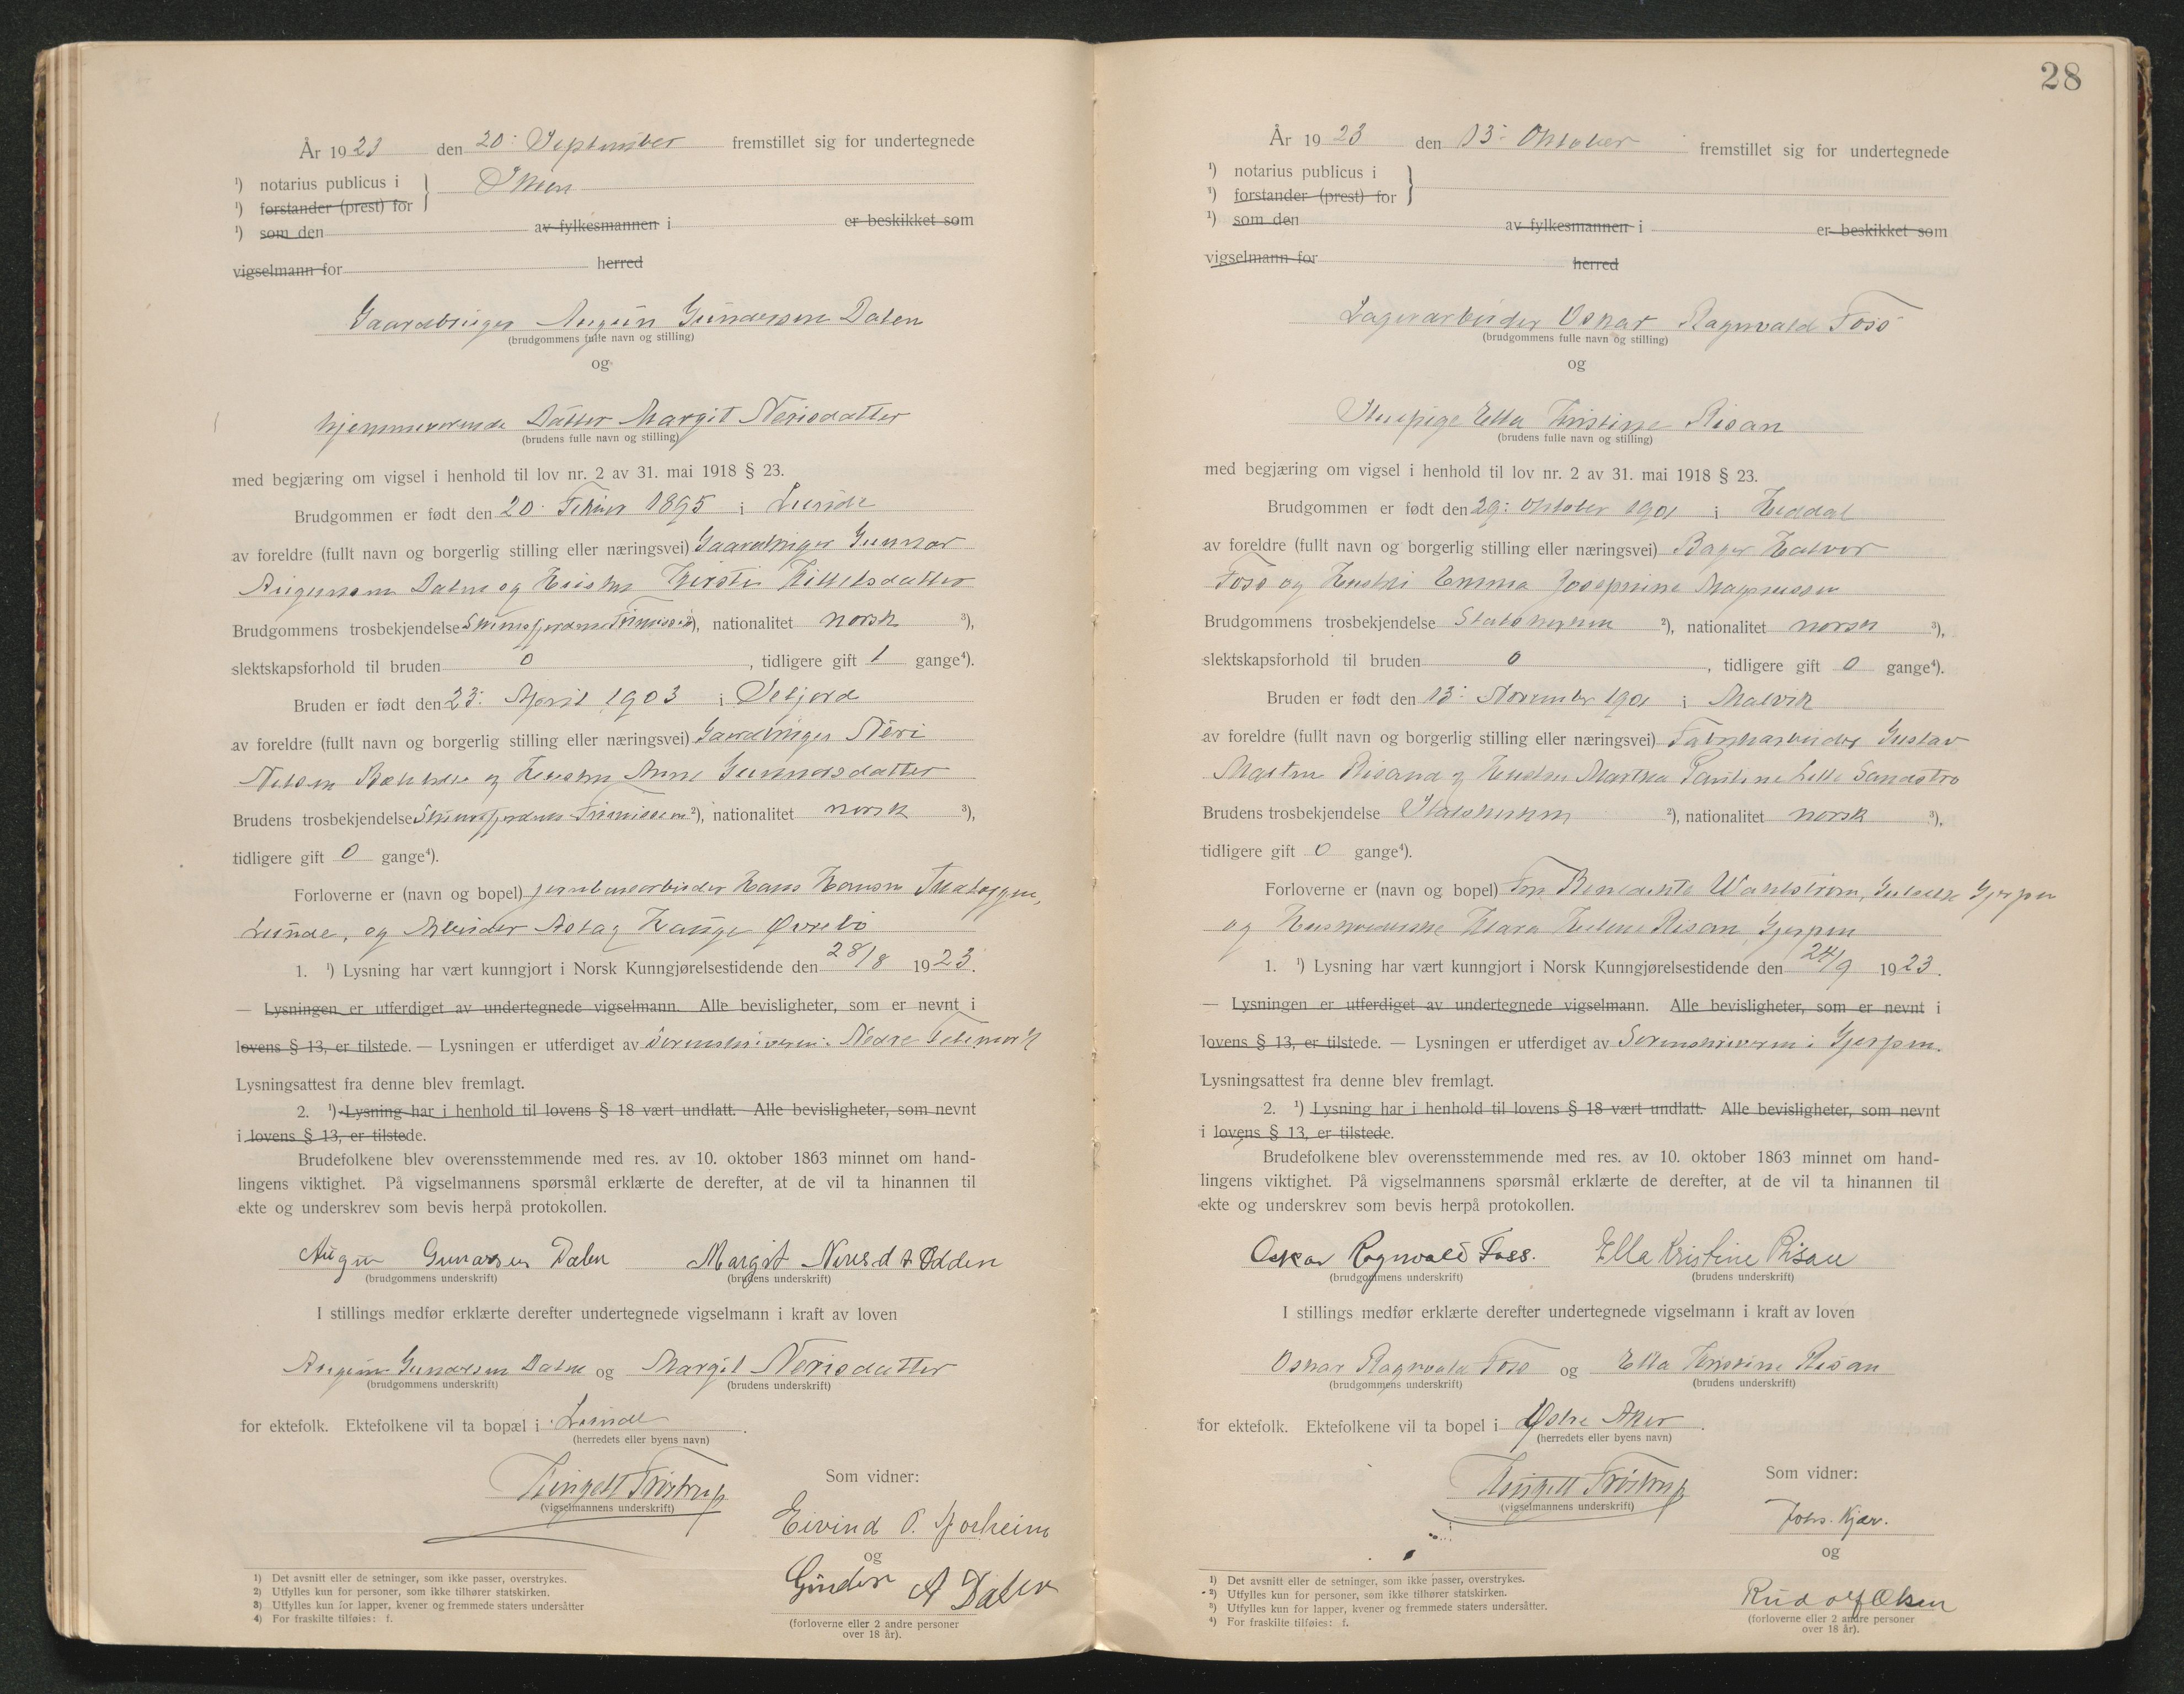 År 1923 den 20: September fremstillet sig for undertegnede
¹) notarius publicus i } Skien
¹) forstander (prest) for
¹) som den av fylkesmannen i er beskikket som
vigselmann for herred
Gaardbruger Augun Gundersen Dalen
(brudgommens fulle navn og stilling)
og
hjemmeværende Datter Margit Nerisdatter
(brudens fulle navn og stilling)
med begjæring om vigsel i henhold til lov nr. 2 av 31. mai 1918 § 23.
Brudgommen er født den 20. Februar 1895 i Lunde
av foreldre (fullt navn og borgerlig stilling eller næringsvei) Gaardbruger Gunnar
Augunsen Dalen og Hustru Kirsti Kittelsdatter
Brudgommens trosbekjendelse Skiensfjordens Frimission ²), nationalitet norsk ³),
slektskapsforhold til bruden 0, tidligere gift 1 gange⁴).
Bruden er født den 23: April 1903 i Seljord
av foreldre (fullt navn og borgerlig stilling eller næringsvei) Gaardbruger Neri
Nelsen og Hustru Anne Gunnarsdatter
Brudens trosbekjendelse Skiensfjordens Frimission ²), nationalitet norsk ³),
tidligere gift 0 gange⁴).
Forloverne er (navn og bopel) jernbanearbeider Hans Hansen
Lunde, og Arbeider Aslag Hauge Øvrebø
1. ¹) Lysning har vært kunngjort i Norsk Kunngjørelsestidende den 28/8 1923.
— Lysningen er utferdiget av undertegnede vigselmann. Alle bevisligheter, som er nevnt i
lovens § 13, er tilstede. — Lysningen er utferdiget av Sorenskriveren i Nedre Telemark
Lysningsattest fra denne blev fremlagt.
2. ¹) Lysning har i henhold til lovens § 18 vært undlatt. Alle bevisligheter, som nevnt
i lovens § 13, er tilstede.
Brudefolkene blev overensstemmende med res. av 10. oktober 1863 minnet om hand-
lingens viktighet. På vigselmannens spørsmål erklærte de derefter, at de vil ta hinannen til
ekte og underskrev som bevis herpå protokollen.
Augun Gunarsen Dalen Margit Neresdt Odden
(brudgommens underskrift) (brudens underskrift)
I stillings medfør erklærte derefter undertegnede vigselmann i kraft av loven
Augun Gundersen Dalen og Margit Nerisdatter
(brudgommens underskrift) (brudens underskrift)
for ektefolk. Ektefolkene vil ta bopæl i Lunde.
(herredets eller byens navn)
Som vidner:
Tringett Frøstrup
(vigselmannens underskrift)
Eivind O. Norheim
og
Gunder A Dalen
(forloverne eller 2 andre personer
over 18 år).
1) Det avsnitt eller de setninger, som ikke passer, overstrykes.
2) Utfylles kun for personer, som ikke tilhører statskirken.
3) Utfylles kun for lapper, kvener og fremmede staters undersåtter
4) For fraskilte tilføies: f.
28
År 1923 den 13: Oktober fremstillet sig for undertegnede
¹) notarius publicus i }
¹) forstander (prest) for
¹) som den av fylkesmannen i er beskikket som
vigselmann for herred
Lagerarbeider Oskar Ragnvald Foss
(brudgommens fulle navn og stilling)
og
Stuepige Ella Kristine Risan
(brudens fulle navn og stilling)
med begjæring om vigsel i henhold til lov nr. 2 av 31. mai 1918 § 23.
Brudgommen er født den 29: Oktober 1901 i Heddal
av foreldre (fullt navn og borgerlig stilling eller næringsvei) Bager Halvor
Foss og Hustru Emma Josephine Magnussen
Brudgommens trosbekjendelse Statskirken ²), nationalitet norsk ³),
slektskapsforhold til bruden 0, tidligere gift 0 gange⁴).
Bruden er født den 13: November 1901 i Malvik
av foreldre (fullt navn og borgerlig stilling eller næringsvei) Fabrikarbeider Gustav
Martin Risand og Hustru Martha Pauline Sandstrø
Brudens trosbekjendelse Statskirken ²), nationalitet norsk ³),
tidligere gift 0 gange⁴).
Forloverne er (navn og bopel) Fru Benedikte Wahlstrøm, Gulsett Gjerpen
og Husmoderske Klara Helene Risan, Gjerpen
1. ¹) Lysning har vært kunngjort i Norsk Kunngjørelsestidende den 24/9 1923.
— Lysningen er utferdiget av undertegnede vigselmann. Alle bevisligheter, som er nevnt i
lovens § 13, er tilstede. — Lysningen er utferdiget av Sorenskriveren i Gjerpen.
Lysningsattest fra denne blev fremlagt.
2. ¹) Lysning har i henhold til lovens § 18 vært undlatt. Alle bevisligheter, som nevnt
i lovens § 13, er tilstede.
Brudefolkene blev overensstemmende med res. av 10. oktober 1863 minnet om hand-
lingens viktighet. På vigselmannens spørsmål erklærte de derefter, at de vil ta hinannen til
ekte og underskrev som bevis herpå protokollen.
Oskar Ragnvald Foss. Ella Kristine Risan
(brudgommens underskrift) (brudens underskrift)
I stillings medfør erklærte derefter undertegnede vigselmann i kraft av loven
Oskar Ragnvald Foss og Ella Kristine Risan
(brudgommens underskrift) (brudens underskrift)
for ektefolk. Ektefolkene vil ta bopel i Østre Aker.
(herredets eller byens navn)
Som vidner:
Tringett Frøstrup
(vigselmannens underskrift)
Johs. Kjær.
og
Rudolf Olsen
(forloverne eller 2 andre personer
over 18 år).
1) Det avsnitt eller de setninger, som ikke passer, overstrykes.
2) Utfylles kun for personer, som ikke tilhører statskirken.
3) Utfylles kun for lapper, kvener og fremmede staters undersåtter.
4) For fraskilte tilføies: f.